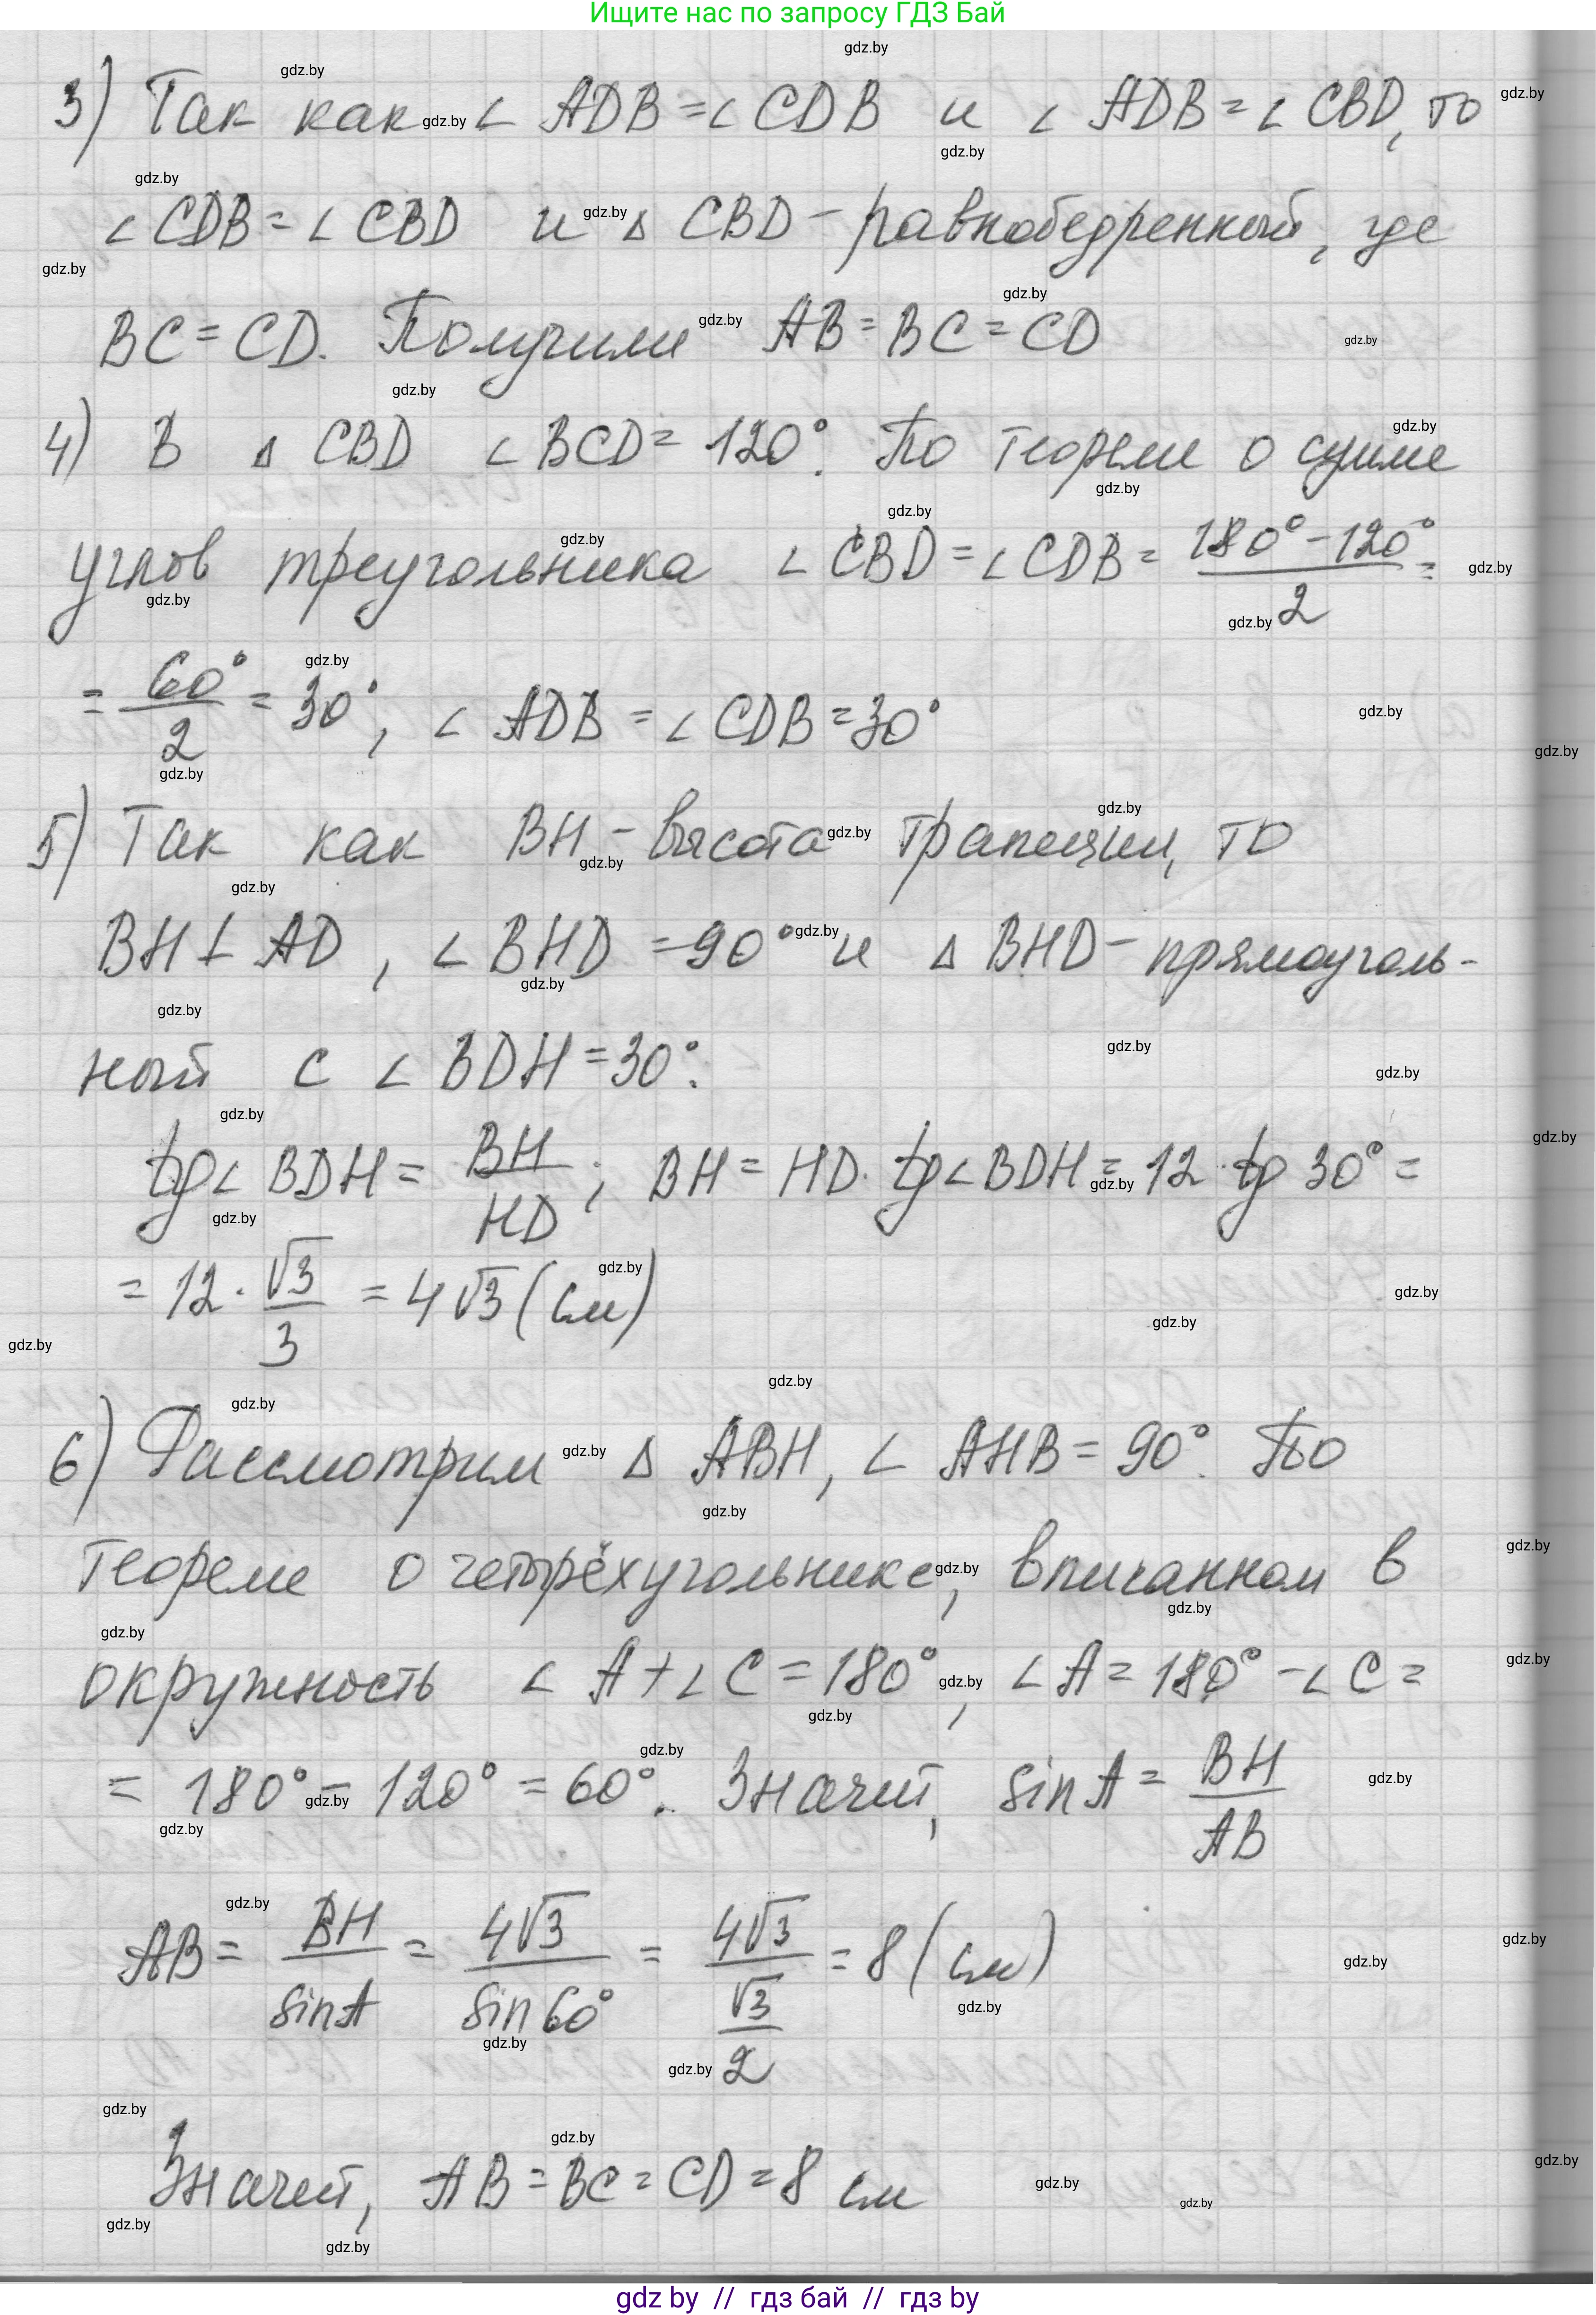 Ищите нас по запросу ГДЗ Бай
3) Так как ∠ ADB = ∠ CDB и ∠ ADB = ∠ CBD, то
∠ CDB = ∠ CBD и Δ CBD - равнобедренный, где
BC = CD. Получили AB = BC = CD
4) В Δ CBD ∠ BCD = 120°. По теореме о сумме
углов треугольника ∠ CBD = ∠ CDB = (180° - 120°)/2 =
= 60°/2 = 30°, ∠ ADB = ∠ CDB = 30°
5) Так как BH - высота трапеции, то
BH ⊥ AD, ∠ BHD = 90° и Δ BHD - прямоуголь-
ный с ∠ BDH = 30°:
tg∠ BDH = BH/HD; BH = HD · tg∠BDH = 12 · tg 30° =
= 12 · √3/3 = 4√3 (см)
6) Рассмотрим Δ ABH, ∠ AHB = 90°. По
теореме о четырёхугольнике, вписанном в
окружность ∠ A + ∠ C = 180°, ∠ A = 180° - ∠ C =
= 180° - 120° = 60°. Значит, sin A = BH/AB
AB = BH/sin A = 4√3/sin 60° = 4√3/(√3/2) = 8 (см)
Значит, AB = BC = CD = 8 см
gdz by // гдз бай // гдз by